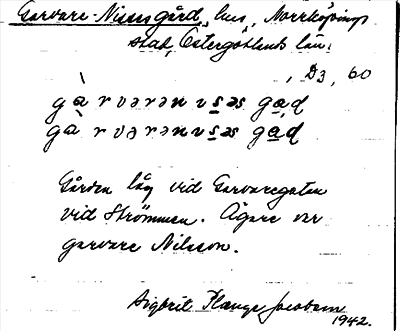 Garvare-Nissesgård, hus, Norrköpings
stad, Östergötlands län.
, D3, 60
gàrvərən nɩsəs gɑd
gàrvərən nɩsəs gɑd
Gården låg vid Garvaregatan
vid Strömmen. Ägare var
garvare Nilsson.
Sigbrit Plænge Jacobson
1942.